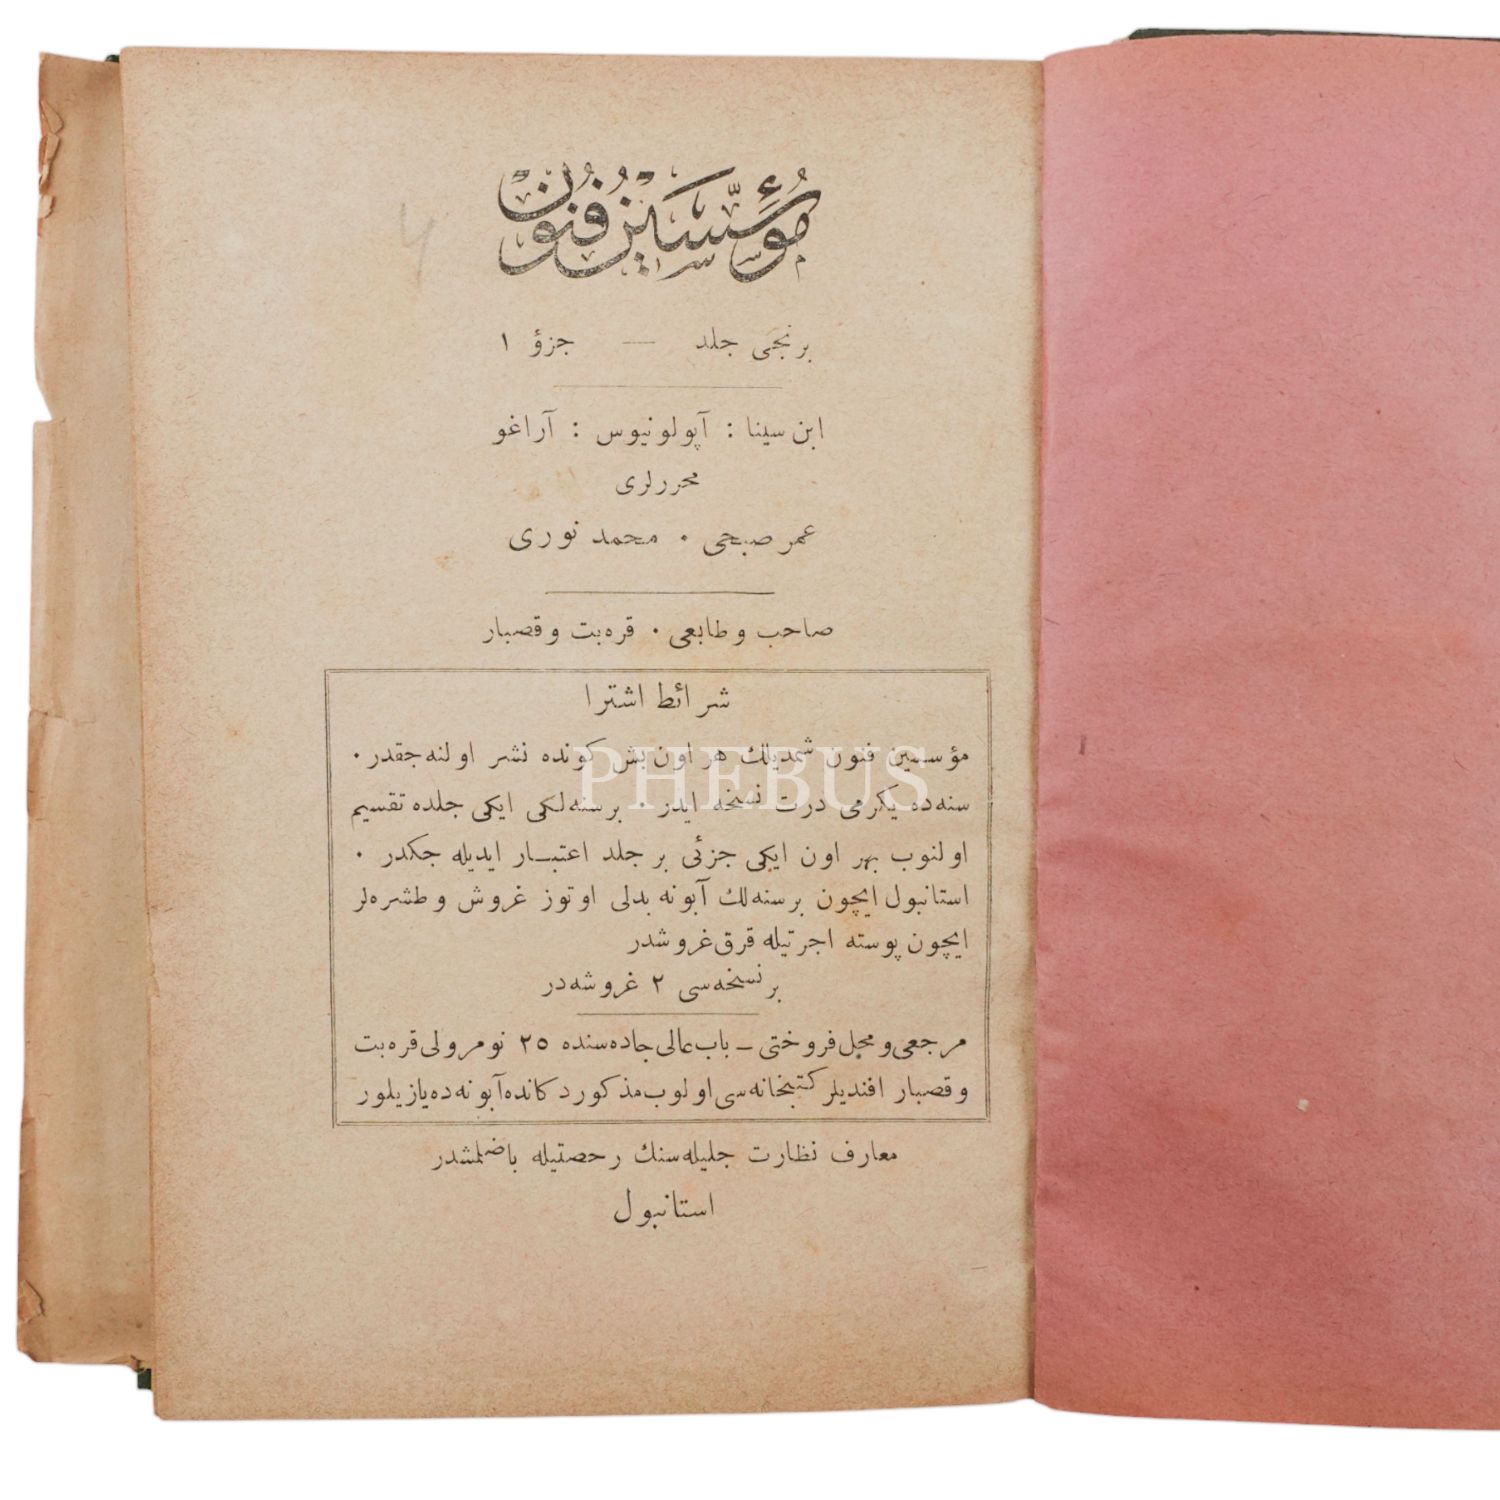 مؤسسین فنون
برنجی جلد — جزؤ ١
ابن سینا : آپولونیوس : آراغو
محررلری
عمر صبحی ۰ محمد نوری
صاحب و طابعی ۰ قره‌بت و قصبار
شرائط اشترا
مؤسسین فنون شمدیلك هر اون بش كونده نشر اولنه‌جقدر ۰
سنه‌ده یكرمی درت نسخه ایدر ۰ برسنه‌لكی ایكی جلده تقسیم
اولنوب بهر اون ایكی جزئی بر جلد اعتبـار ایدیله جكدر ۰
استانبول ایچون برسنه‌لك آبونه بدلی اوتوز غروش وطشره‌لر
ایچون پوسته اجرتیله قرق غروشدر
برنسخه‌سی ٢ غروشه‌در
مرجعی و محل فروختی – باب عالی جاده‌سنده ٢٥ نومرولی قره‌بت
و قصبار افندیلر كتبخانه‌سی اولوب مذكور دكانده آبونه‌ده یازیلور
معارف نظارت جلیله‌سنك رحصتیله باضلمشدر
استانبول
PHEBUS